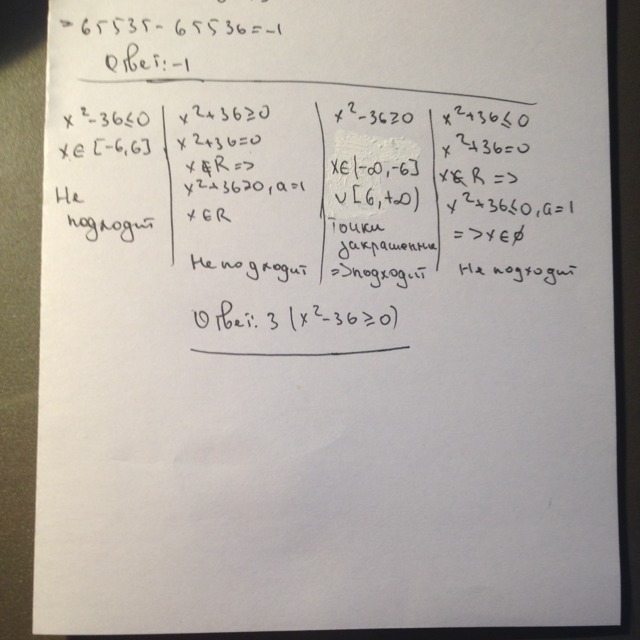 = 65535 - 65536 = -1
Ответ: -1
x²-36≤0
x∈[-6,6]
Не
подходит
x²+36≥0
x²+36=0
x∉R =>
x²+36>0, a=1
x∈R
Не подходит
x²-36≥0
x∈(-∞,-6]
∪[6,+∞)
Точки
закрашенны
=>подходит
x²+36≤0
x²+36=0
x∉R =>
x²+36≤0, a=1
=>x∈∅
Не подходит
Ответ: 3 (x²-36≥0)